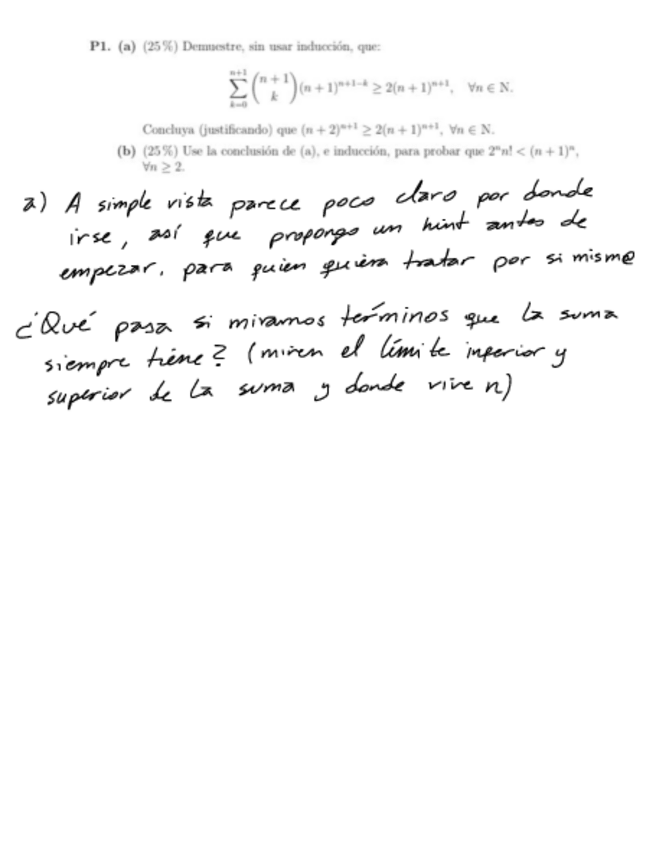 P1. (a) (25%) Demuestre, sin usar inducción, que:
\sum_{k=0}^{n+1} \binom{n+1}{k} (n+1)^{n+1-k} ≥ 2(n+1)^{n+1}, ∀n ∈ ℕ.
Concluya (justificando) que (n+2)^{n+1} ≥ 2(n+1)^{n+1}, ∀n ∈ ℕ.
(b) (25%) Use la conclusión de (a), e inducción, para probar que 2^n n! < (n+1)^n,
∀n ≥ 2.
a) A simple vista parece poco claro por donde
irse, así que propongo un hint antes de
empezar, para quien quiera tratar por si mism@
¿Qué pasa si miramos términos que la suma
siempre tiene? (miren el límite inferior y
superior de la suma y donde vive n)